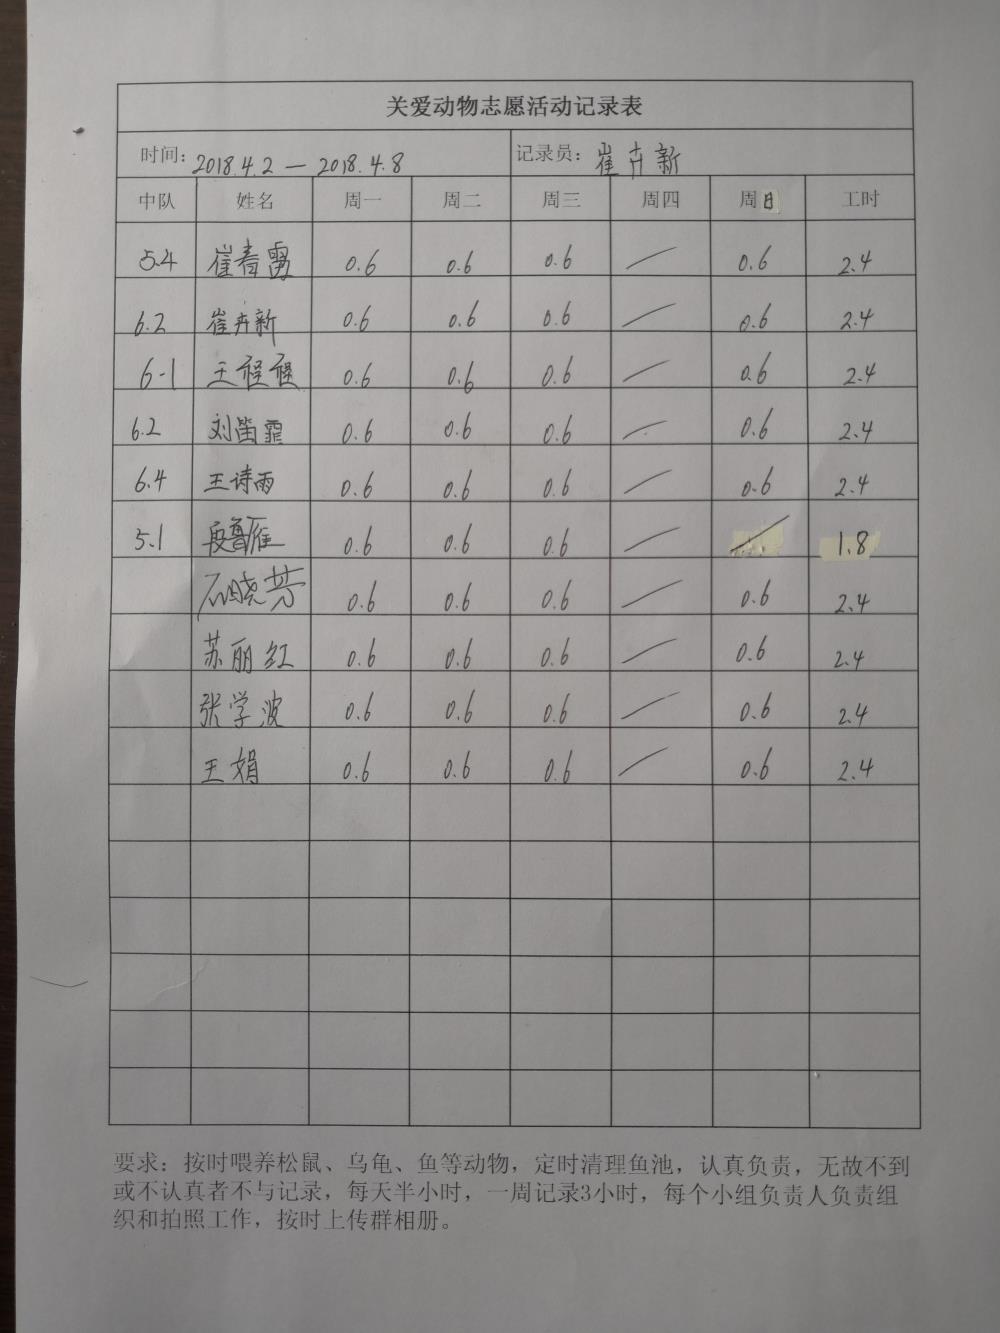 关爱动物志愿活动记录表
时间: 2018.4.2 — 2018.4.8 记录员: 崔卉新
中队 姓名 周一 周二 周三 周四 周日 工时
5.4 崔春雷 0.6 0.6 0.6 / 0.6 2.4
6.2 崔卉新 0.6 0.6 0.6 / 0.6 2.4
6-1 王 0.6 0.6 0.6 / 0.6 2.4
6.2 刘笛霏 0.6 0.6 0.6 / 0.6 2.4
6.4 王诗雨 0.6 0.6 0.6 / 0.6 2.4
5.1 段鲁雁 0.6 0.6 0.6 / / 1.8
石晓芳 0.6 0.6 0.6 / 0.6 2.4
苏丽红 0.6 0.6 0.6 / 0.6 2.4
张学波 0.6 0.6 0.6 / 0.6 2.4
王娟 0.6 0.6 0.6 / 0.6 2.4
要求：按时喂养松鼠、乌龟、鱼等动物，定时清理鱼池，认真负责，无故不到
或不认真者不与记录，每天半小时，一周记录3小时，每个小组负责人负责组
织和拍照工作，按时上传群相册。